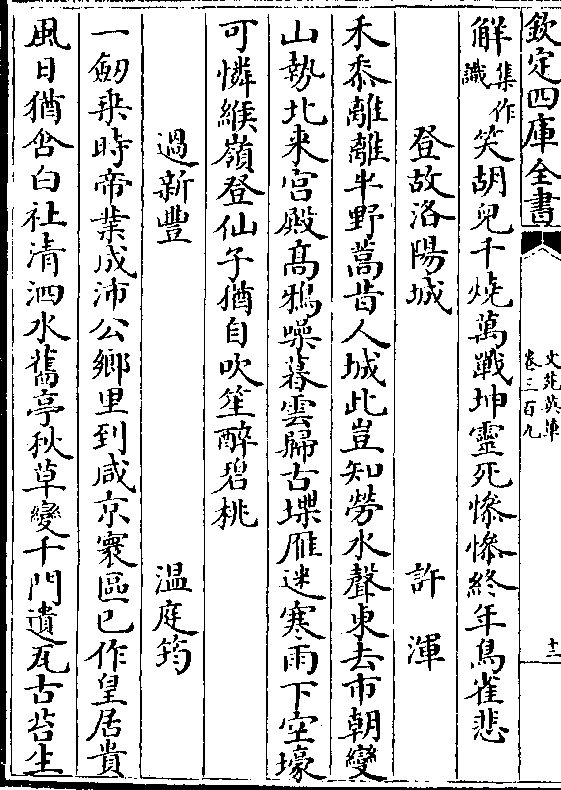 欽定四庫全書
文苑英華
卷三百九
十二
解集作識笑胡兒千燒萬戰坤靈死慘慘終年鳥雀悲
登故洛陽城 許渾
禾黍離離半野蒿昔人城此豈知勞水聲東去市朝變
山勢北來宮殿髙鴉噪暮雲歸古堞雁迷寒雨下空壕
可憐緱嶺登仙子猶自吹笙醉碧桃
過新豐 温庭筠
一劒乗時帝業成沛公鄉里到咸京寰區已作皇居貴
風日猶含白社清泗水舊亭秋草變千門遺瓦古苔生